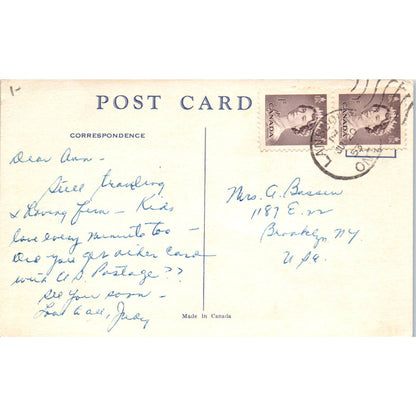 1-
POST CARD
CORRESPONDENCE
Dear Ann -
Still traveling
& Having fun - Kids
love every minute too -
Did you get other card
with U.S. Postage??
See you soon -
Love to all, Judy
Mrs. A. Bassen
1187 E.
Brooklyn, NY.
USA.
CANADA
CANADA
ONT
Made in Canada